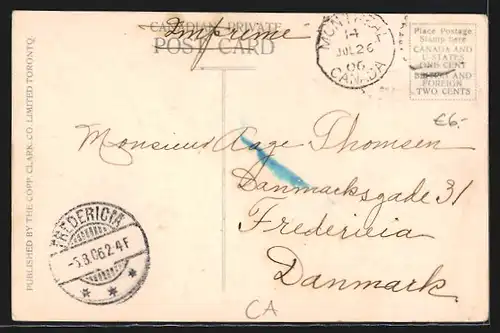 CANADIAN PRIVATE
POST CARD
Imprimé
MONTREAL
14
JUL 26
06
CANADA
Place Postage
Stamp here
CANADA AND
U-STATES
ONE CENT
BRITISH AND
FOREIGN
TWO CENTS
€6.-
Monsieur Aage Thomsen
Danmarksgade 31
Fredericia
Danmark
FREDERICIA
-5.8.06 2-4 F
CA
PUBLISHED BY THE COPP. CLARK. CO LIMITED TORONTO.